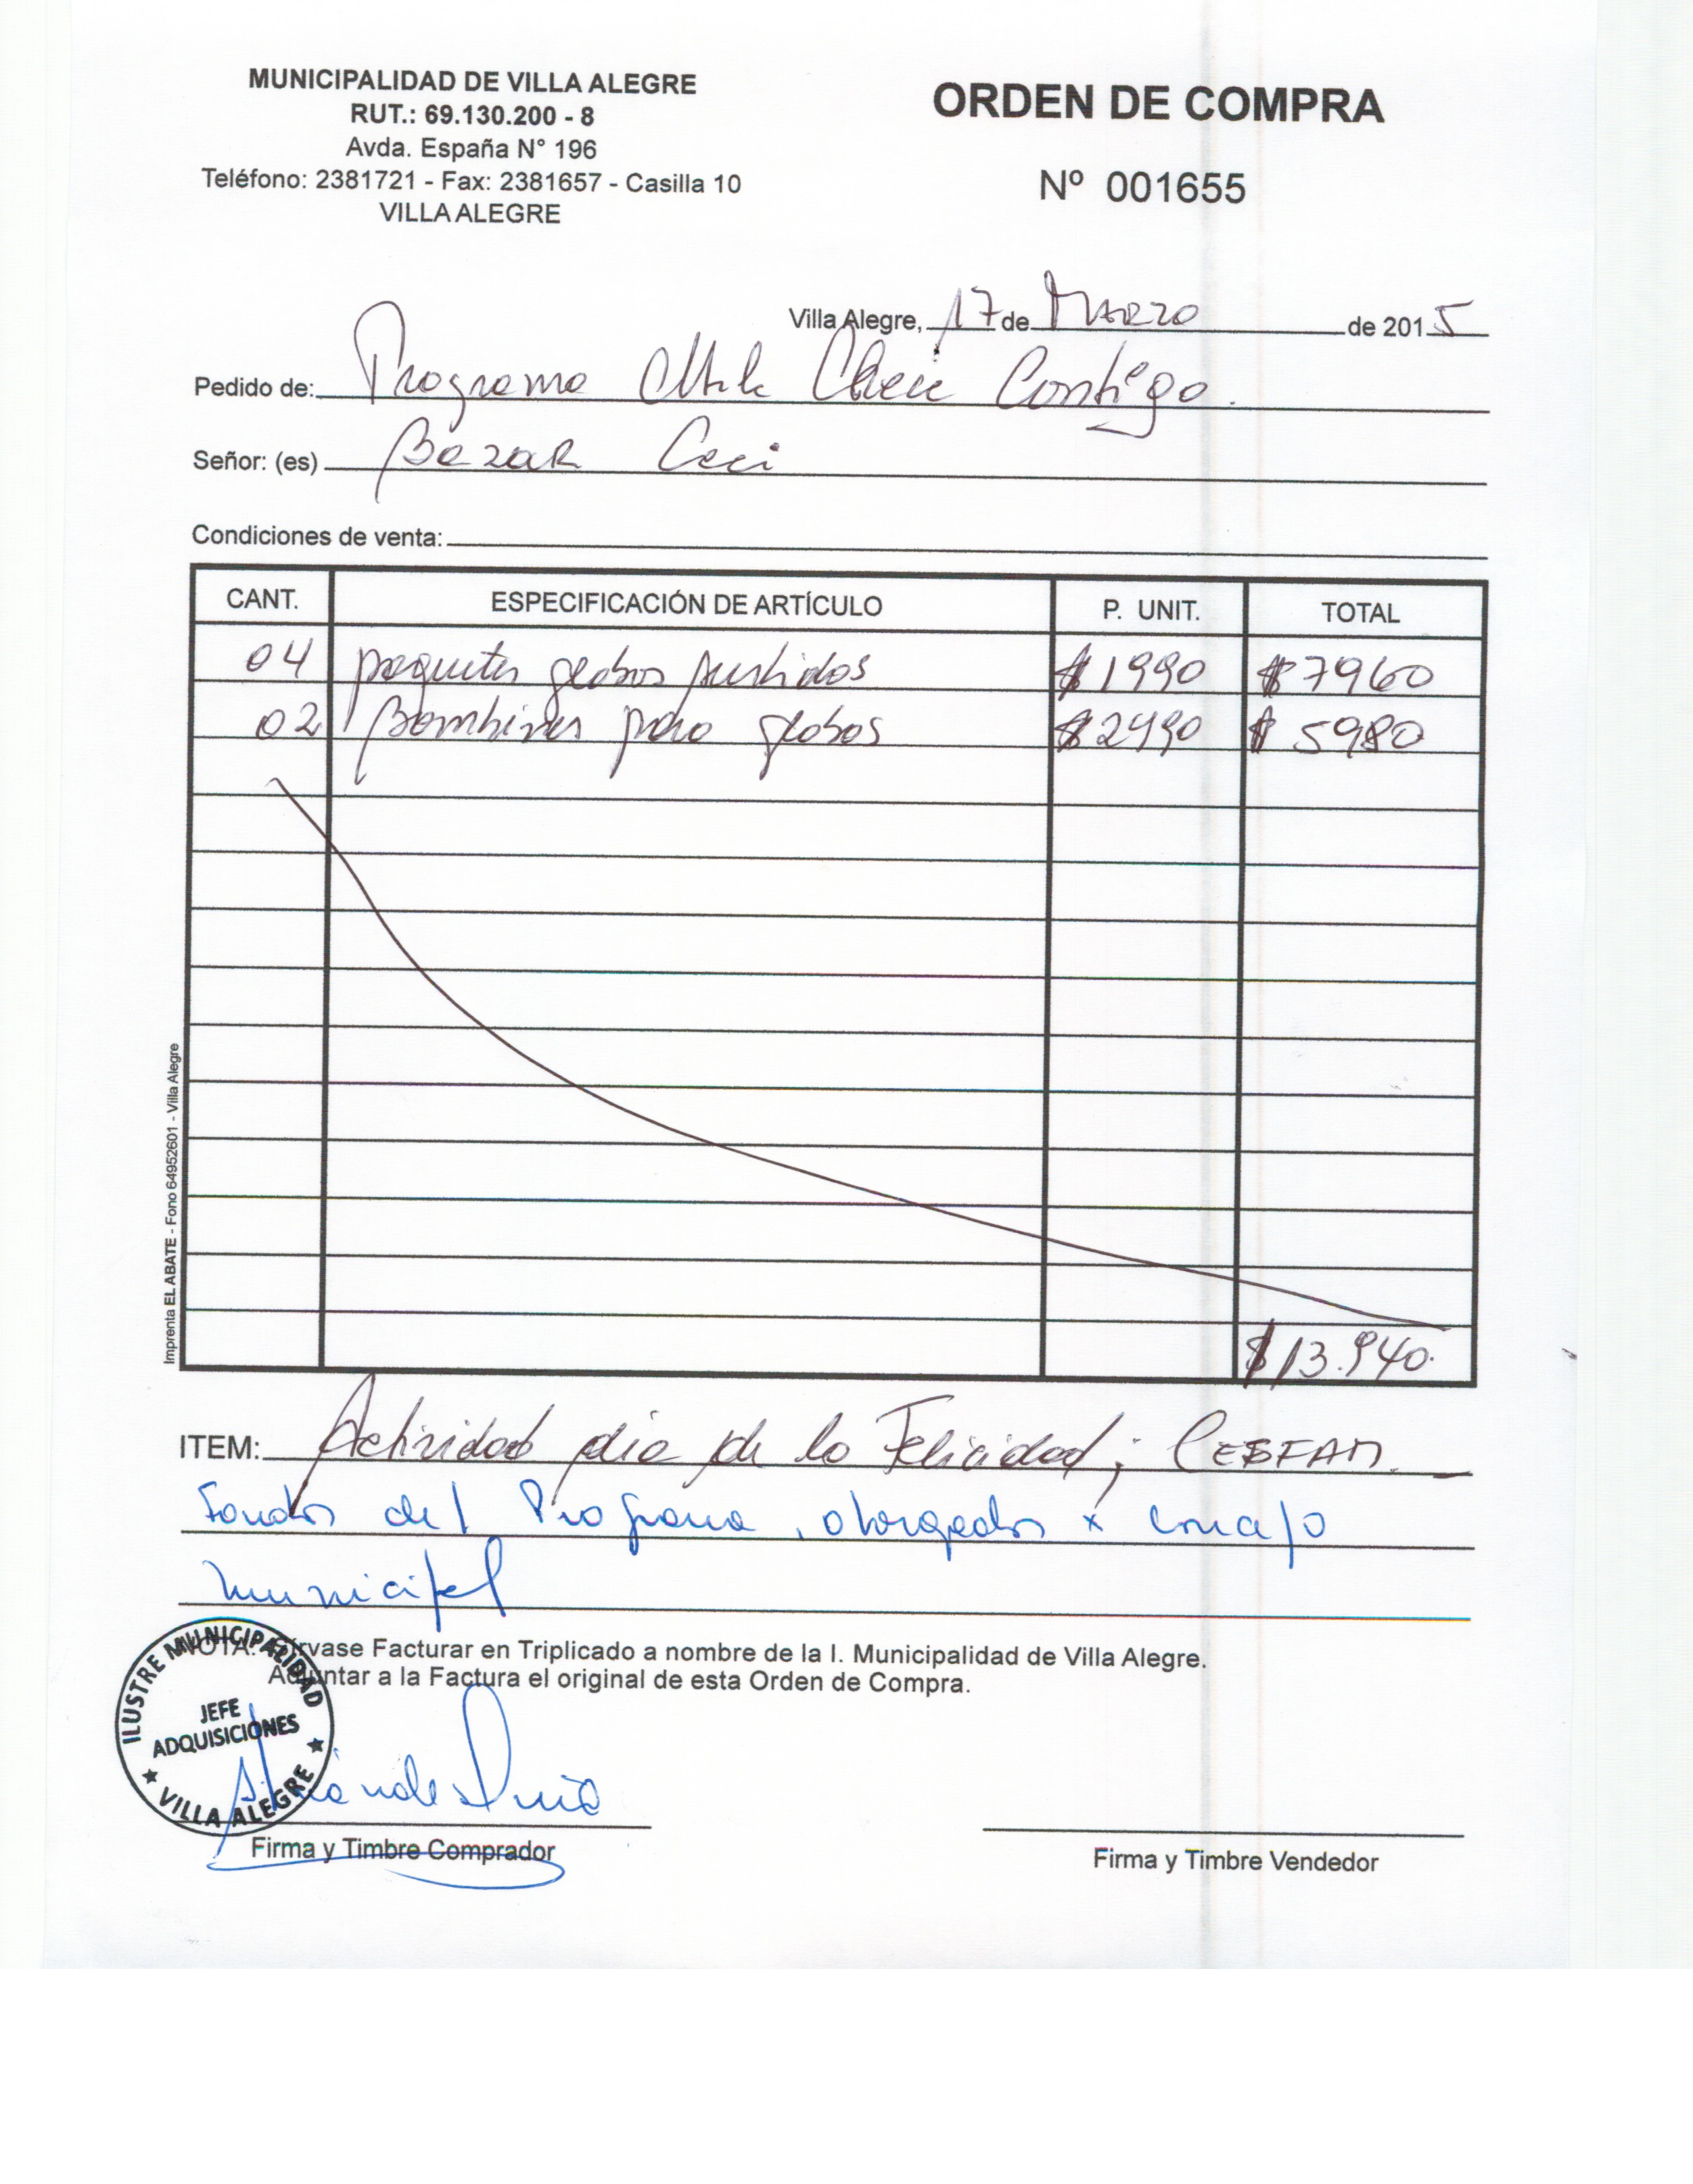 MUNICIPALIDAD DE VILLA ALEGRE
RUT.: 69.130.200 - 8
Avda. España N° 196
Teléfono: 2381721 - Fax: 2381657 - Casilla 10
VILLA ALEGRE
ORDEN DE COMPRA
Nº 001655
Villa Alegre, 17 de Marzo de 2015
Pedido de: Programa Chile Crece Contigo.
Señor: (es) Bazar Ceci
Condiciones de venta:
CANT. ESPECIFICACIÓN DE ARTÍCULO P. UNIT. TOTAL
04 paquetes globos surtidos $1990 $7960
02 Bombines para globos $2990 $5980
$13.940.
ITEM: Actividad día de la Felicidad; CESFAM.
Fondos del Programa, otorgados x concejo
municipal
NOTA: Sírvase Facturar en Triplicado a nombre de la I. Municipalidad de Villa Alegre.
Adjuntar a la Factura el original de esta Orden de Compra.
ILUSTRE MUNICIPALIDAD
JEFE
ADQUISICIONES
VILLA ALEGRE
Firma y Timbre Comprador
Firma y Timbre Vendedor
Imprenta EL ABATE - Fono 64952601 - Villa Alegre